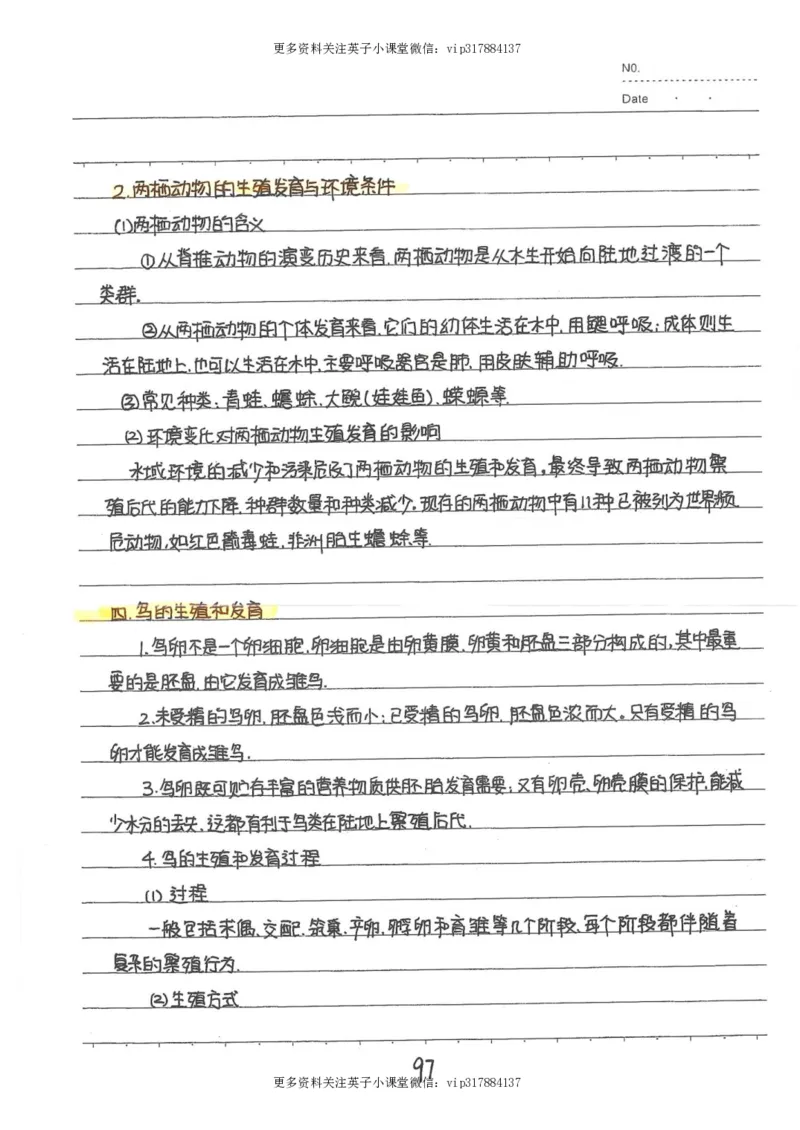 更多资料关注英子小课堂微信：vip317884137
NO.
Date
2.两栖动物的生殖发育与环境条件
(1)两栖动物的含义
①从脊椎动物的演变历史来看,两栖动物是从水生开始向陆地过渡的一个
类群.
②从两栖动物的个体发育来看,它们的幼体生活在水中,用鳃呼吸;成体则生
活在陆地上,也可以生活在水中,主要呼吸器官是肺,用皮肤辅助呼吸.
③常见种类:青蛙、蟾蜍、大鲵(娃娃鱼)、蝾螈等.
(2)环境变化对两栖动物生殖发育的影响
水域环境的减少和污染危及了两栖动物的生殖和发育,最终导致两栖动物繁
殖后代的能力下降,种群数量和种类减少。现在的两栖动物中有11种已被列为世界频
危动物,如红色箭毒蛙,非洲胎生蟾蜍等.
四.鸟的生殖和发育
1.鸟卵不是一个卵细胞,卵细胞是由卵黄膜、卵黄和胚盘三部分构成的,其中最重
要的是胚盘,由它发育成雏鸟.
2.未受精的鸟卵,胚盘色浅而小;已受精的鸟卵,胚盘色浓而大。只有受精的鸟
卵才能发育成雏鸟.
3.鸟卵既可贮存丰富的营养物质供胚胎发育需要;又有卵壳、卵壳膜的保护,能减
少水分的丢失,这都有利于鸟类在陆地上繁殖后代.
4.鸟的生殖和发育过程
(1)过程
一般包括求偶、交配、筑巢、产卵、孵卵和育雏等几个阶段、每个阶段都伴随着
复杂的繁殖行为.
(2)生殖方式
97
更多资料关注英子小课堂微信：vip317884137